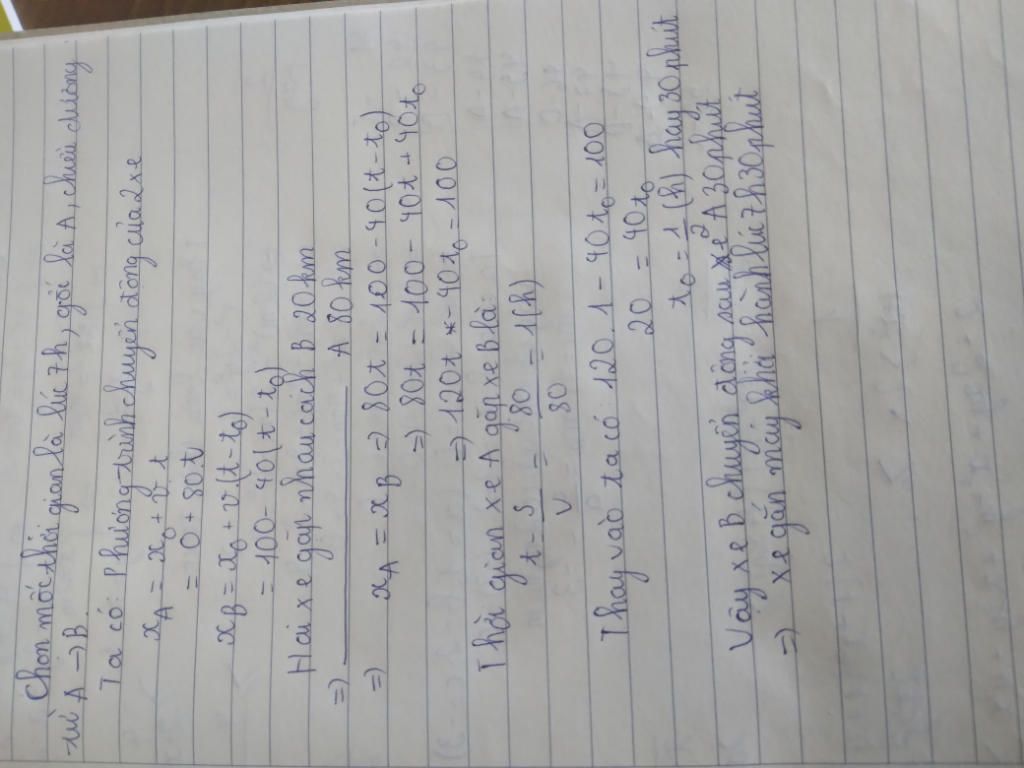 Chọn mốc thời gian là lúc 7h, gốc là A, chiều dương
từ A → B
Ta có: Phương trình chuyển động của 2 xe
xA = x0 + v.t
= 0 + 80.t
xB = x0 + v(t - t0)
= 100 - 40(t - t0)
Hai xe gặp nhau cách B 20 km
=> A 80 km
=> xA = xB => 80t = 100 - 40(t - t0)
=> 80t = 100 - 40t + 40t0
=> 120t - 40t0 = 100
Thời gian xe A gặp xe B là:
t = S/v = 80/80 = 1(h)
Thay vào ta có: 120.1 - 40t0 = 100
20 = 40t0
t0 = 1/2 (h) hay 30 phút
Vậy xe B chuyển động sau xe A 30 phút
=> xe gắn máy khởi hành lúc 7h30phút